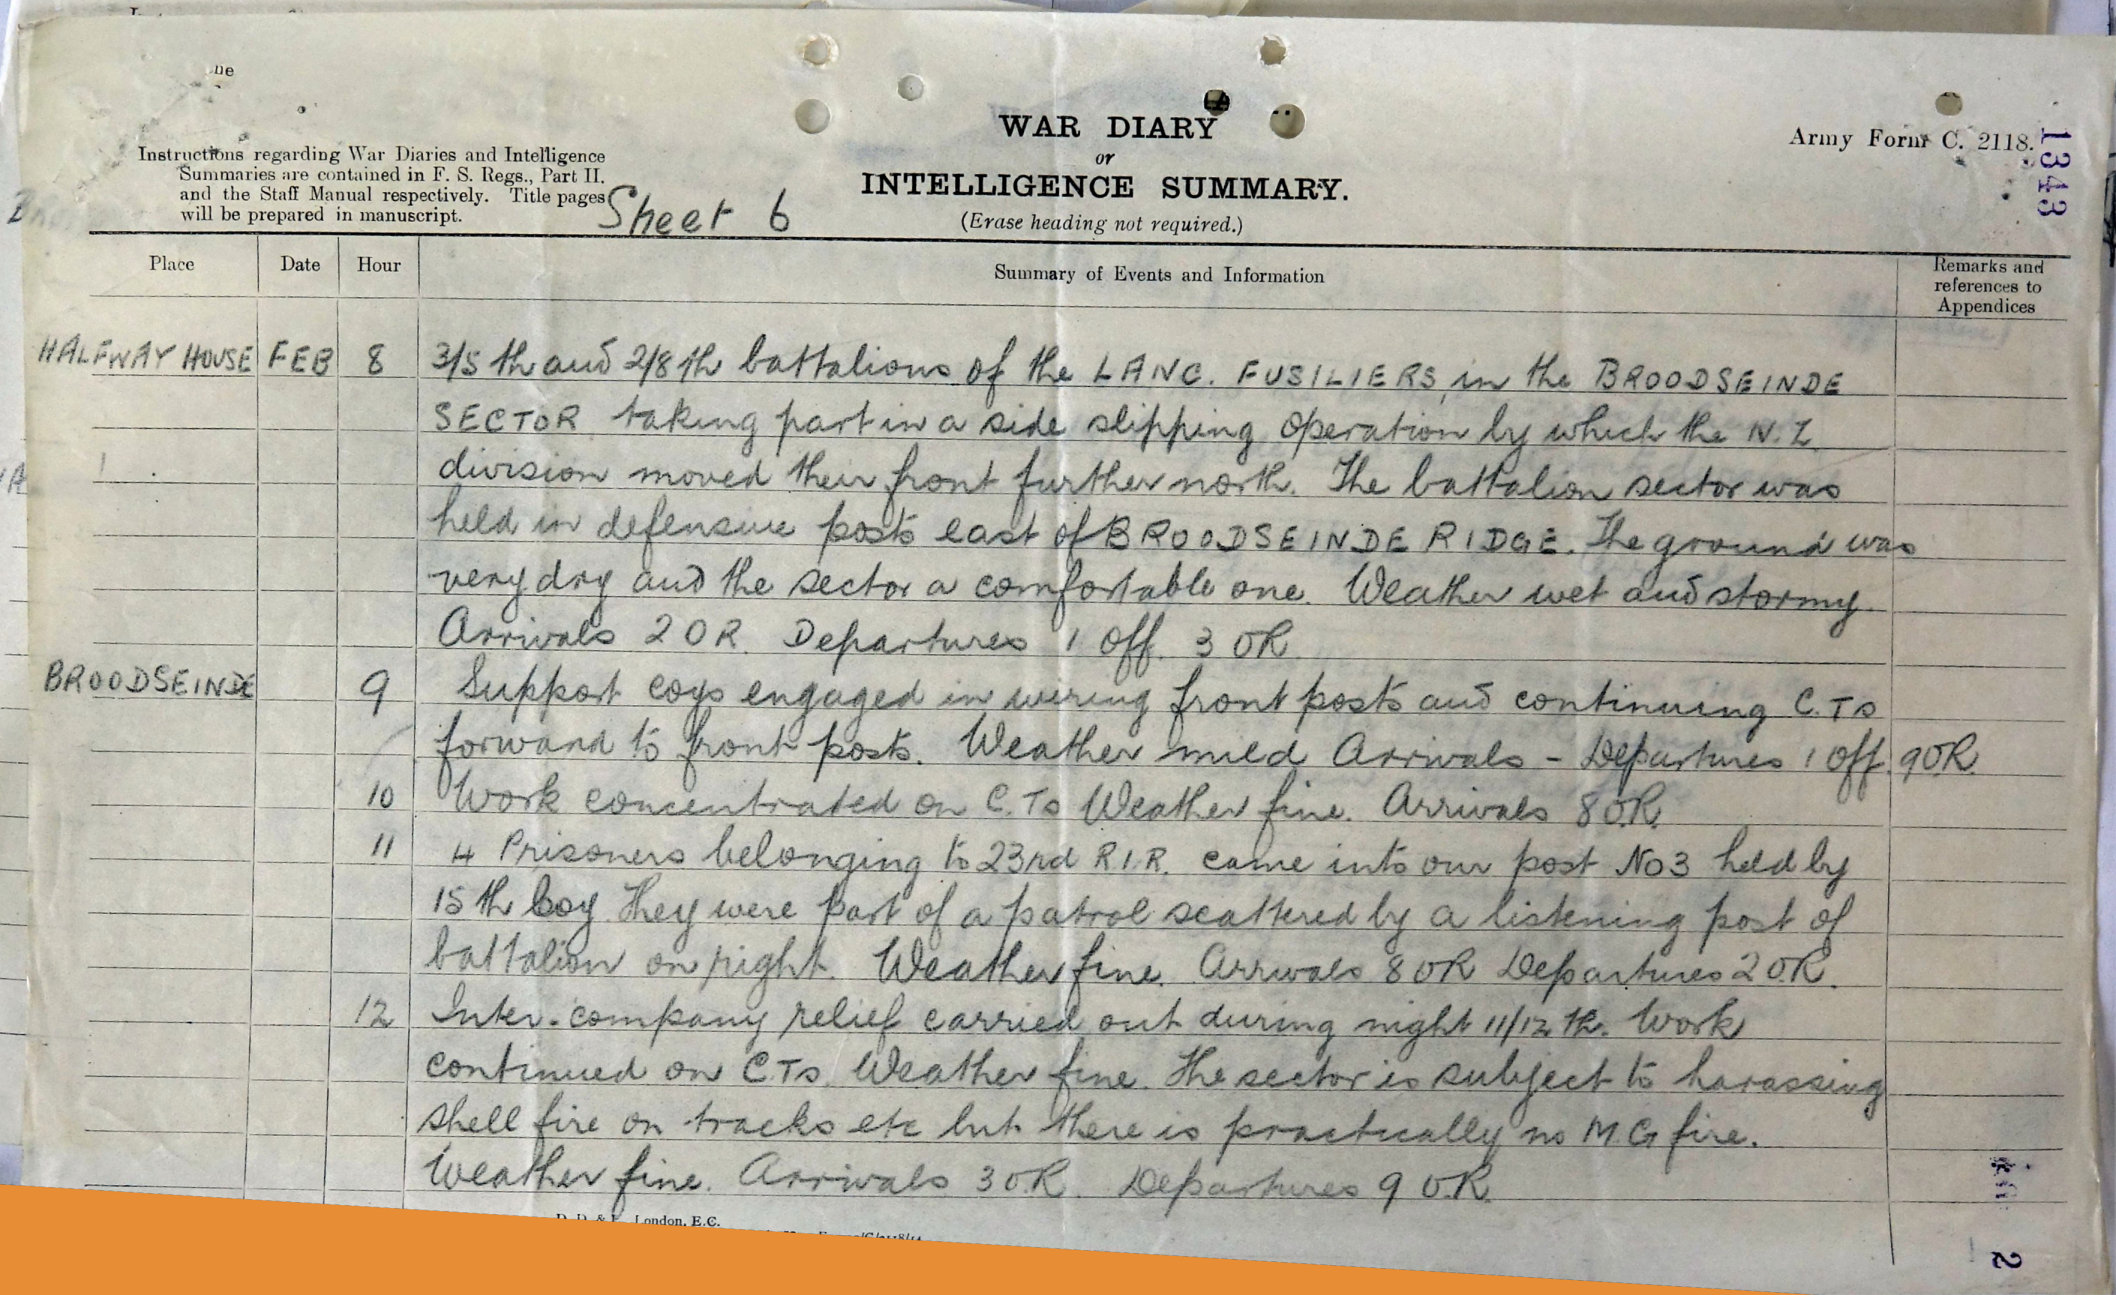 WAR DIARY
or
INTELLIGENCE SUMMARY.
(Erase heading not required.)
Army Form C. 2118.
1343
Instructions regarding War Diaries and Intelligence
Summaries are contained in F. S. Regs., Part II.
and the Staff Manual respectively. Title pages
will be prepared in manuscript.
Sheet 6
Place Date Hour Summary of Events and Information Remarks and references to Appendices
HALFWAY HOUSE FEB 8 3/5th and 2/8th battalions of the LANC. FUSILIERS, in the BROODSEINDE
SECTOR taking part in a side slipping operation by which the N.Z.
division moved their front further north. The battalion sector was
held in defensive posts east of BROODSEINDE RIDGE. The ground was
very dry and the sector a comfortable one. Weather wet and stormy.
Arrivals 2 OR. Departures 1 Off. 3 OR
BROODSEINDE 9 Support coys engaged in wiring front posts and continuing C.Ts
forward to front posts. Weather mild Arrivals - Departures 1 Off. 9 OR.
10 Work concentrated on C.Ts Weather fine. Arrivals 8 O.R.
11 4 Prisoners belonging to 23rd R.I.R. came into our post No 3 held by
15th Coy. They were part of a patrol scattered by a listening post of
battalion on right. Weather fine. Arrivals 8 OR Departures 2 O.R.
12 Inter-company relief carried out during night 11/12th. Work
continued on C.Ts. Weather fine. The sector is subject to harassing
shell fire on tracks etc but there is practically no M.G fire.
Weather fine. Arrivals 3 O.R. Departures 9 O.R.
London, E.C.
2